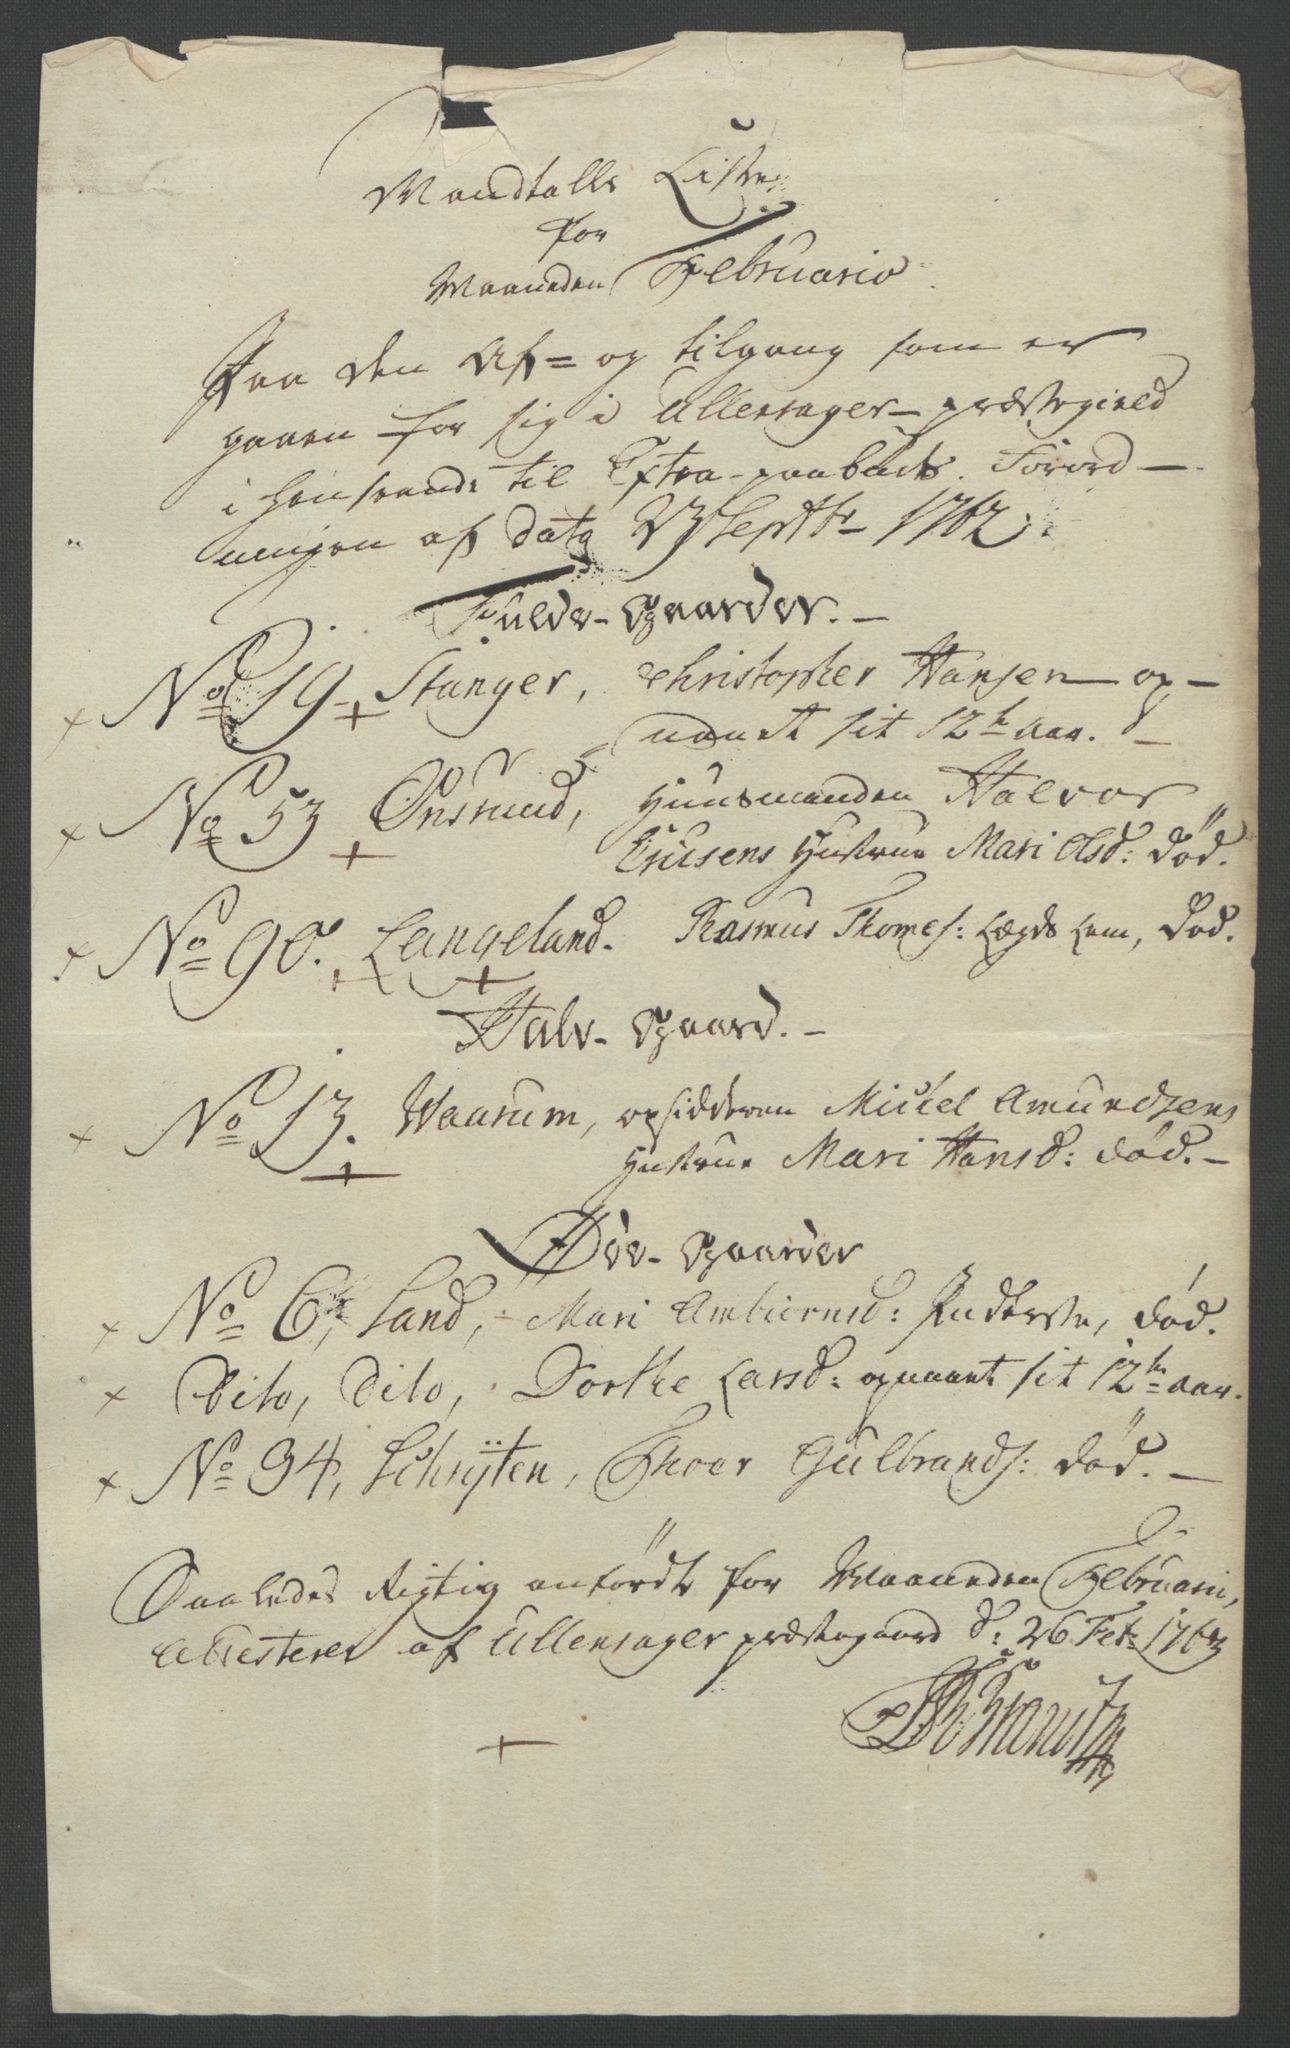 Mandtalls Liste
for
Maaneden Februario
Paa den Af= og tilgang som er
gaaen for sig i Ullensager præstegield
i henseende til Extra-paabuds Forord-
ningen af Dato 23 Septbr 1762.
Fulde-gaarder.-
No 19 Stanger, Christopher Hansen op-
naaet sit 12te Aar.-
No 53 Onsrud, Huusmanden Halvor
Ericsens Hustrue Mari Olsd: død.
No 90. Langeland. Rasmus Thomes: Lægds Lem, død.
Halv-gaard.-
No 13. Waarum, opsidderen Michel Amundsens
Hustrue Mari Hansd: død.-
Øde-gaarder
No 6, Sand, Mari Ambiørnsd: Inderste, død.
Dito, Dito, Dorthe Larsd: opnaaet sit 12te Aar.
No 94, Schrÿten, Thoer Gulbrands: død.-
Saaledes Rigtig anført for Maaneden Februarii,
Attesterer af Ullensager præstegaard d: 26 Feb: 1763